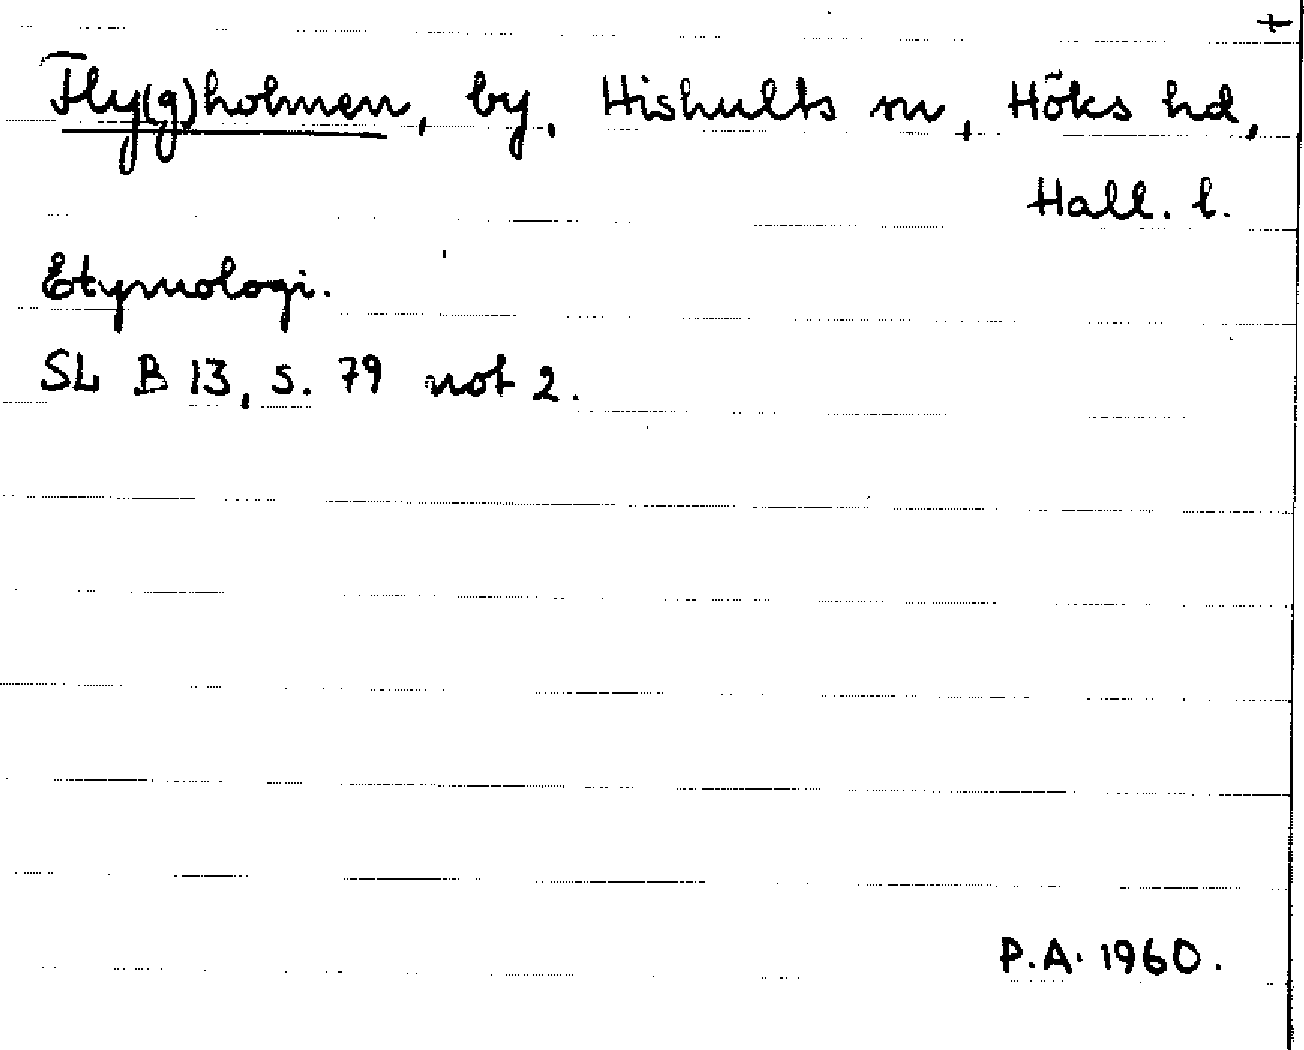 +
Fly(g)holmen, by, Hishults sn, Höks hd,
Hall. l.
Etymologi.
SL B 13, s. 79 not 2.
P.A. 1960.